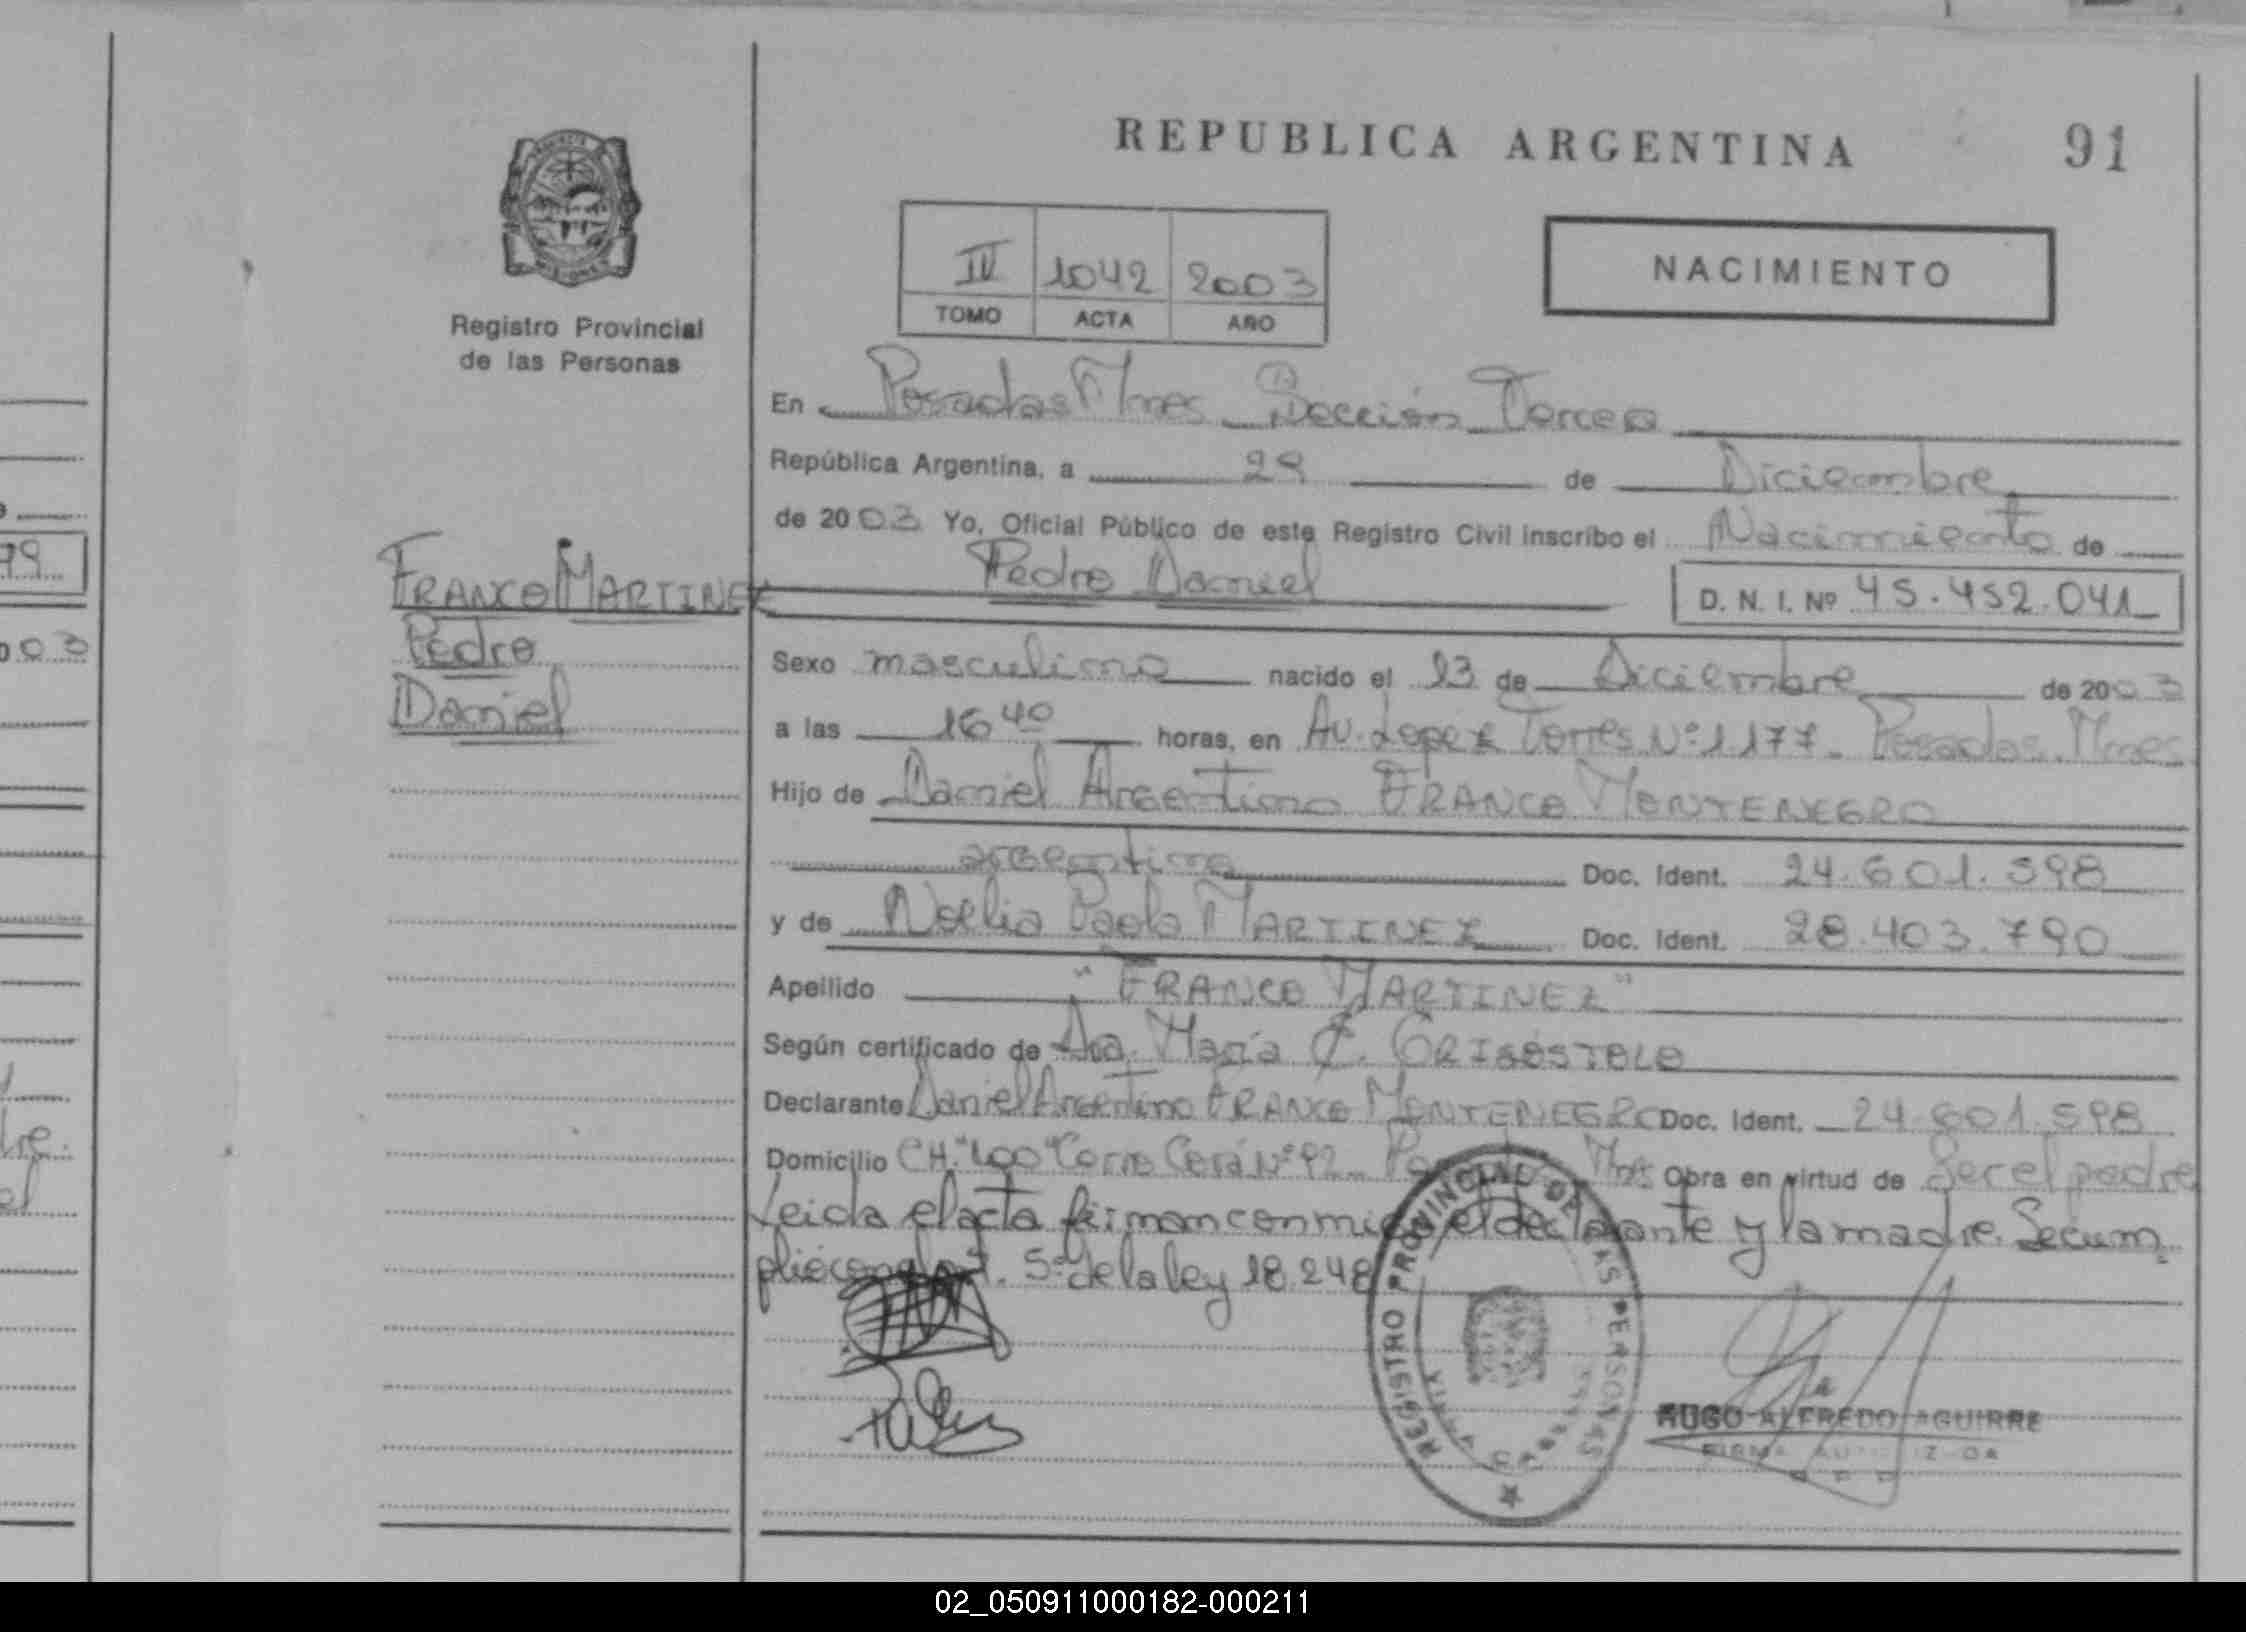 REPUBLICA ARGENTINA
91
Registro Provincial
de las Personas
IV 1042 2003
TOMO ACTA AÑO
NACIMIENTO
En Posadas Mnes Sección Tercera
República Argentina, a 29 de Diciembre
de 2003 Yo, Oficial Público de este Registro Civil inscribo el Nacimiento de
Pedro Daniel
D. N. I. Nº 45.452.041
FRANCO MARTINEZ
Pedro
Daniel
Sexo masculino nacido el 13 de Diciembre de 2003
a las 16 40 horas, en Av. Lopez Torres Nº 1177 - Posadas. Mnes
Hijo de Daniel Argentino FRANCO MONTENEGRO
argentino Doc. Ident. 24.601.598
y de Noelia Paola MARTINEZ Doc. Ident. 28.403.790
Apellido "FRANCO MARTINEZ"
Según certificado de Dra. María C. CRISOSTOLO
Declarante Daniel Argentino FRANCO MONTENEGRO Doc. Ident. 24.601.598
Domicilio CH. "100" Cerro Corá Nº 92 Mnes Obra en virtud de Ser el padre
Leida el acta firman conmigo el declarante y la madre. Se cum
plió con el 5º de la ley 18.248
REGISTRO PROVINCIAL DE LAS PERSONAS
HUGO ALFREDO AGUIRRE
FIRMA AUTORIZADA
79
03
02_050911000182-000211